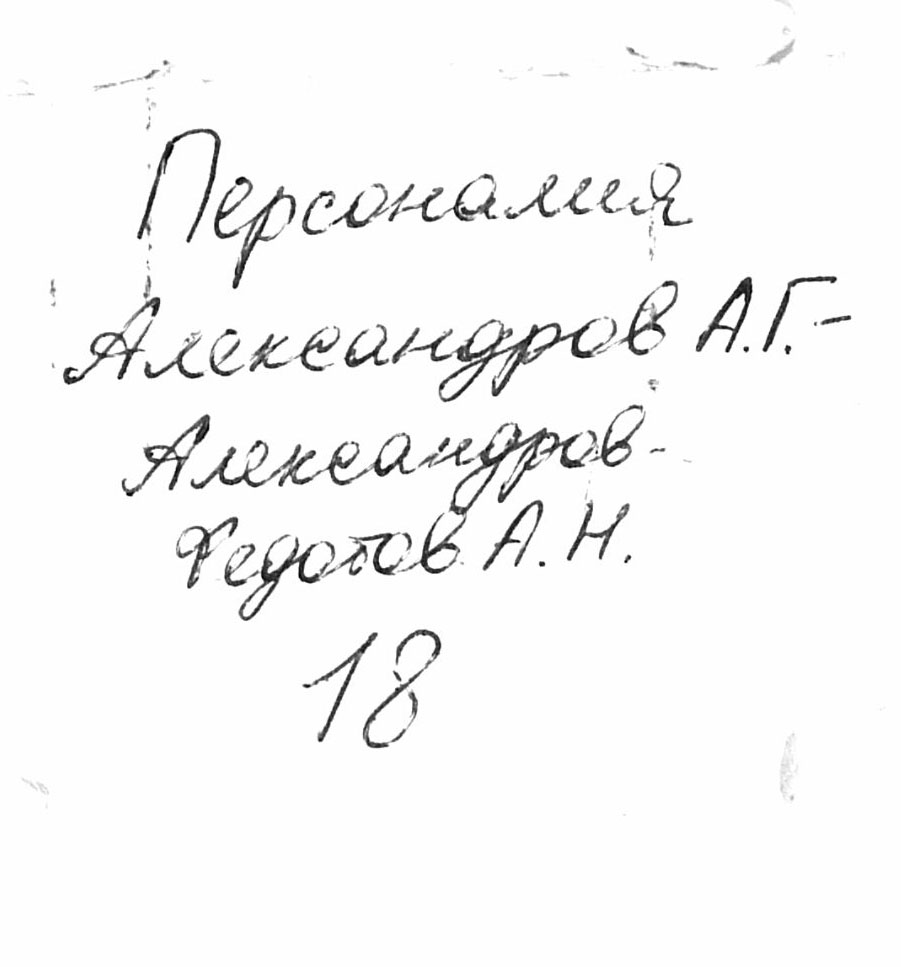 Персоналия
Александров А.Г.-
Александров-
Федотов А.Н.
18